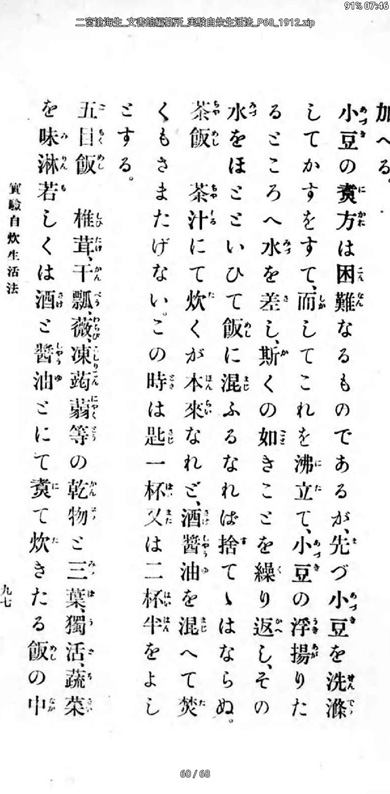 91% 07:46
加へる。
小豆の煑方は困難なるものであるが、先づ小豆を洗滌
してかすをすて、而してこれを沸立て、小豆の浮揚りた
るところへ水を差し、斯くの如きことを繰り返し、その
水をほとといひて飯に混ふるなれば捨てゝはならぬ。
茶飯　茶汁にて炊くが本來なれど、酒醬油を混へて焚
くもさまたげない。この時は匙一杯又は二杯半をよし
とする。
五目飯　椎茸、干瓢、薇、凍蒟蒻等の乾物と三葉、獨活、蔬菜
を味淋若しくは酒と醬油とにて煑て炊きたる飯の中
實驗自炊生活法
九七